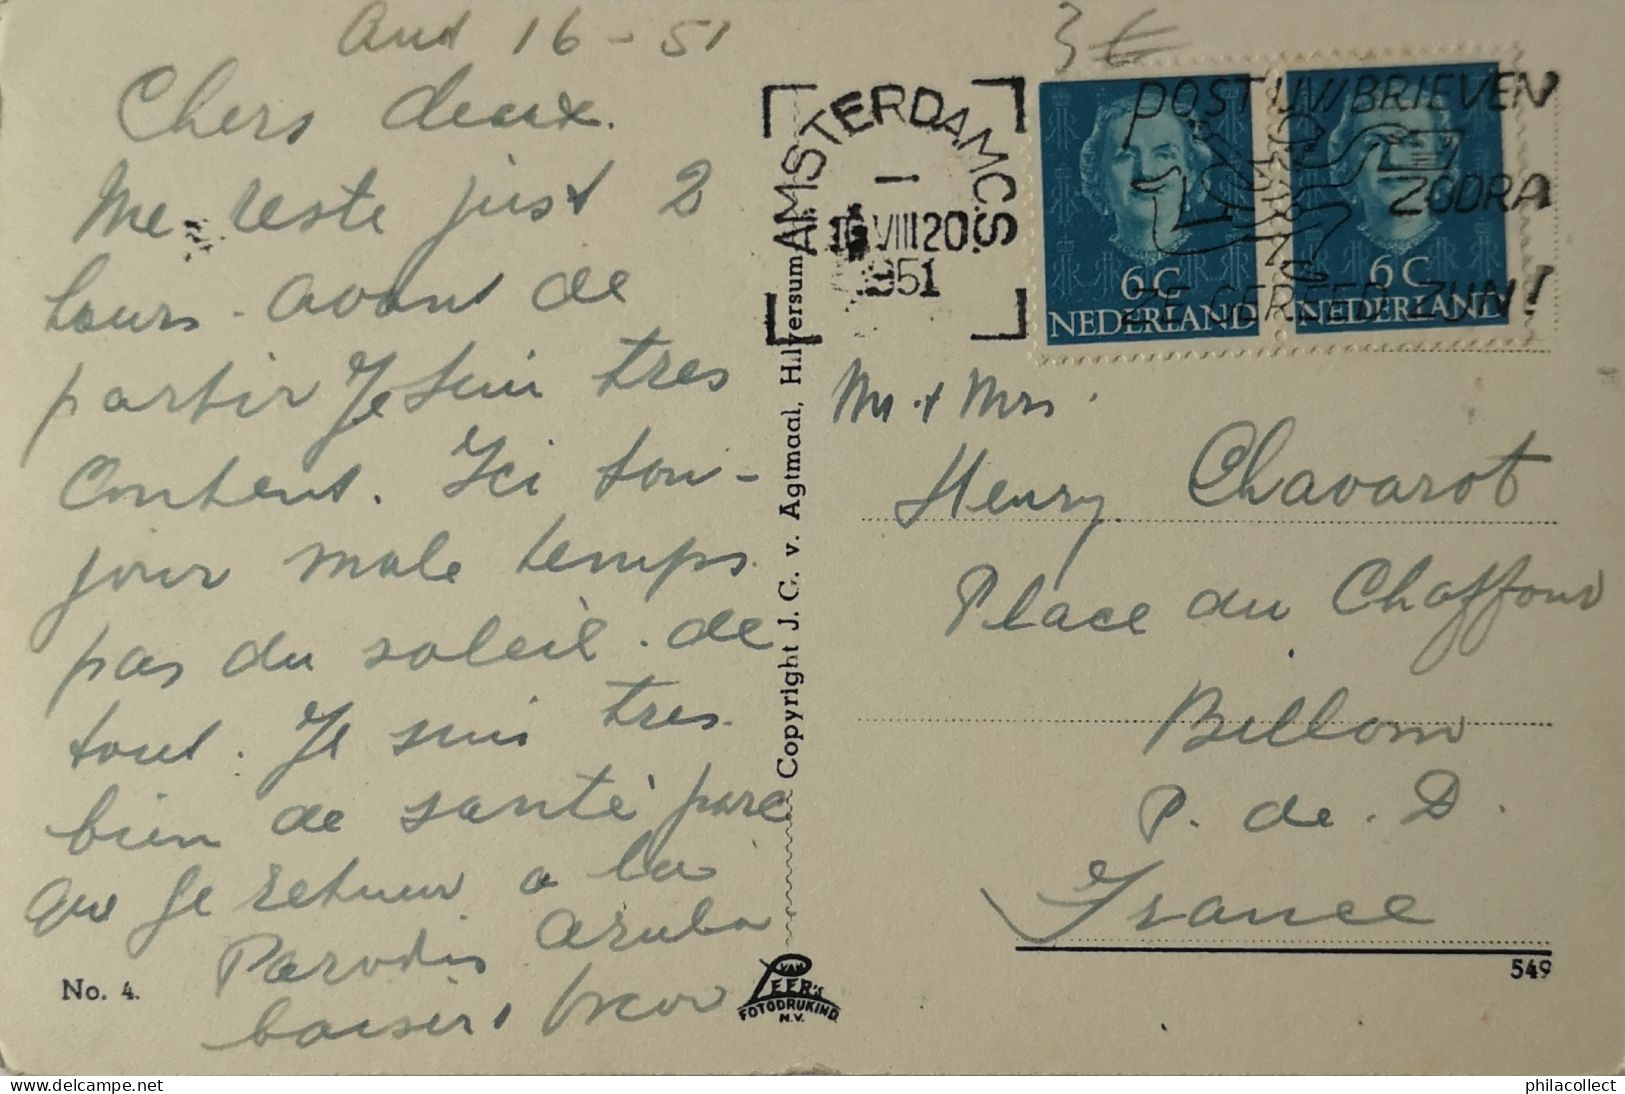 Aut 16 - 51
3 €
Chers deux.
Me reste just 2
heurs. avant de
partir Je suis tres
content. Ici tou-
jour male temps.
pas du soleil. de
tout. Je suis tres.
bien de santé parc
que Je retour a la
Paradis aruba
baisers,
No. 4.
Copyright J. C. v. Agtmaal, Hilversum
VAN LEER's
FOTODRUKIND
N.V.
AMSTERDAM C.S.
1
16 VIII 20
1951
POST UW BRIEVEN
ZODRA
ZE GEREED ZIJN!
6 C
NEDERLAND
6 C
NEDERLAND
Mr. + Mrs.
Henry Chavarot
Place du Chaffour
Billom
P. de. D.
France
549
philacollect